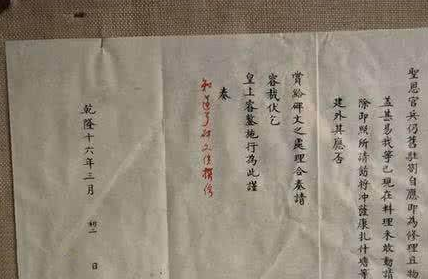 聖恩官兵仍舊駐劄自應即為修理且物
蓋甚易我等已現在料理未敢動請
除即照所請飭將沖薩康扎什塘等
建外其應否
賞給碑文之處理合奏請
睿裁伏乞
皇上睿鑒施行為此謹
奏
知道了碑文
乾隆十六年三月 初二 日